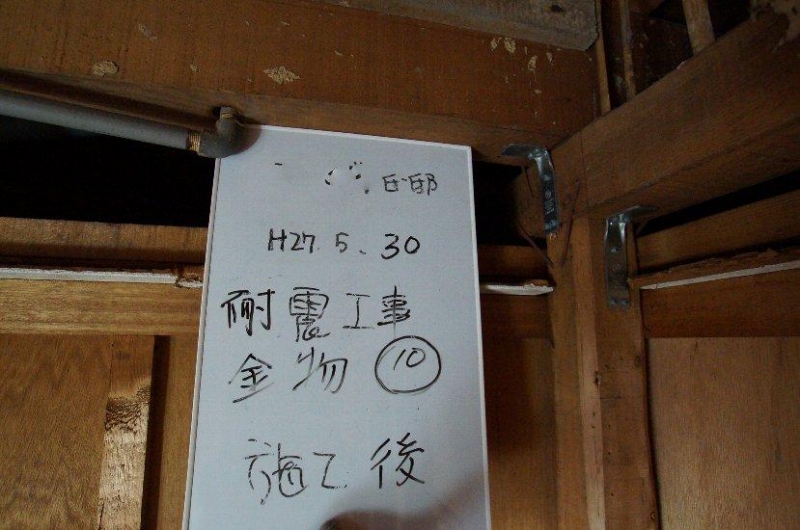 氏邸
H27.5.30
耐震工事
金物⑩
施工後